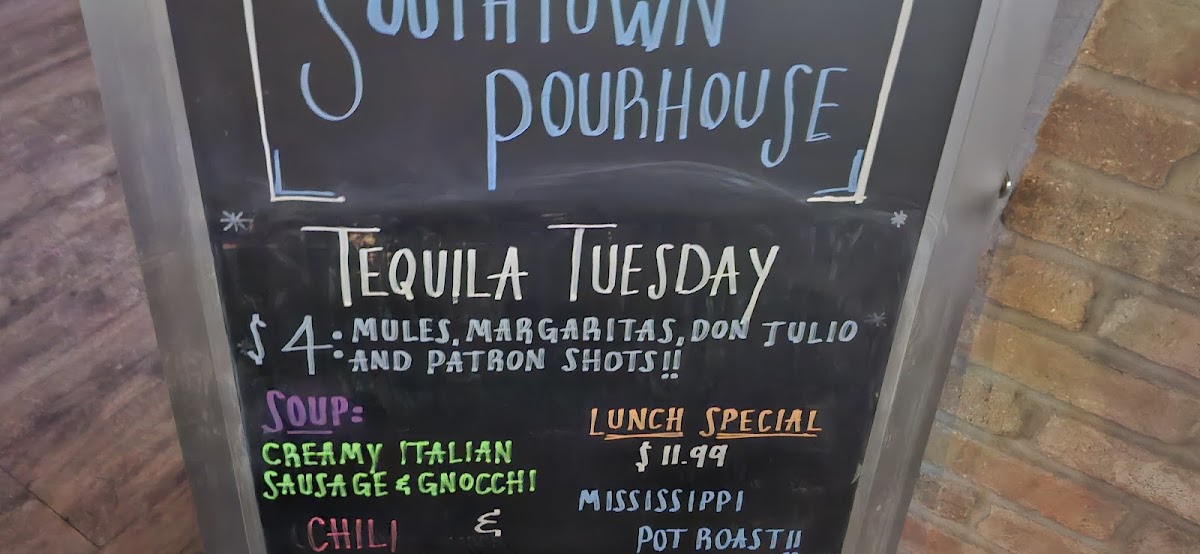 SOUTHTOWN
POURHOUSE
TEQUILA TUESDAY
$4: MULES, MARGARITAS, DON JULIO
AND PATRON SHOTS!!
SOUP:
CREAMY ITALIAN
SAUSAGE & GNOCCHI
&
CHILI
LUNCH SPECIAL
$11.99
MISSISSIPPI
POT ROAST!!